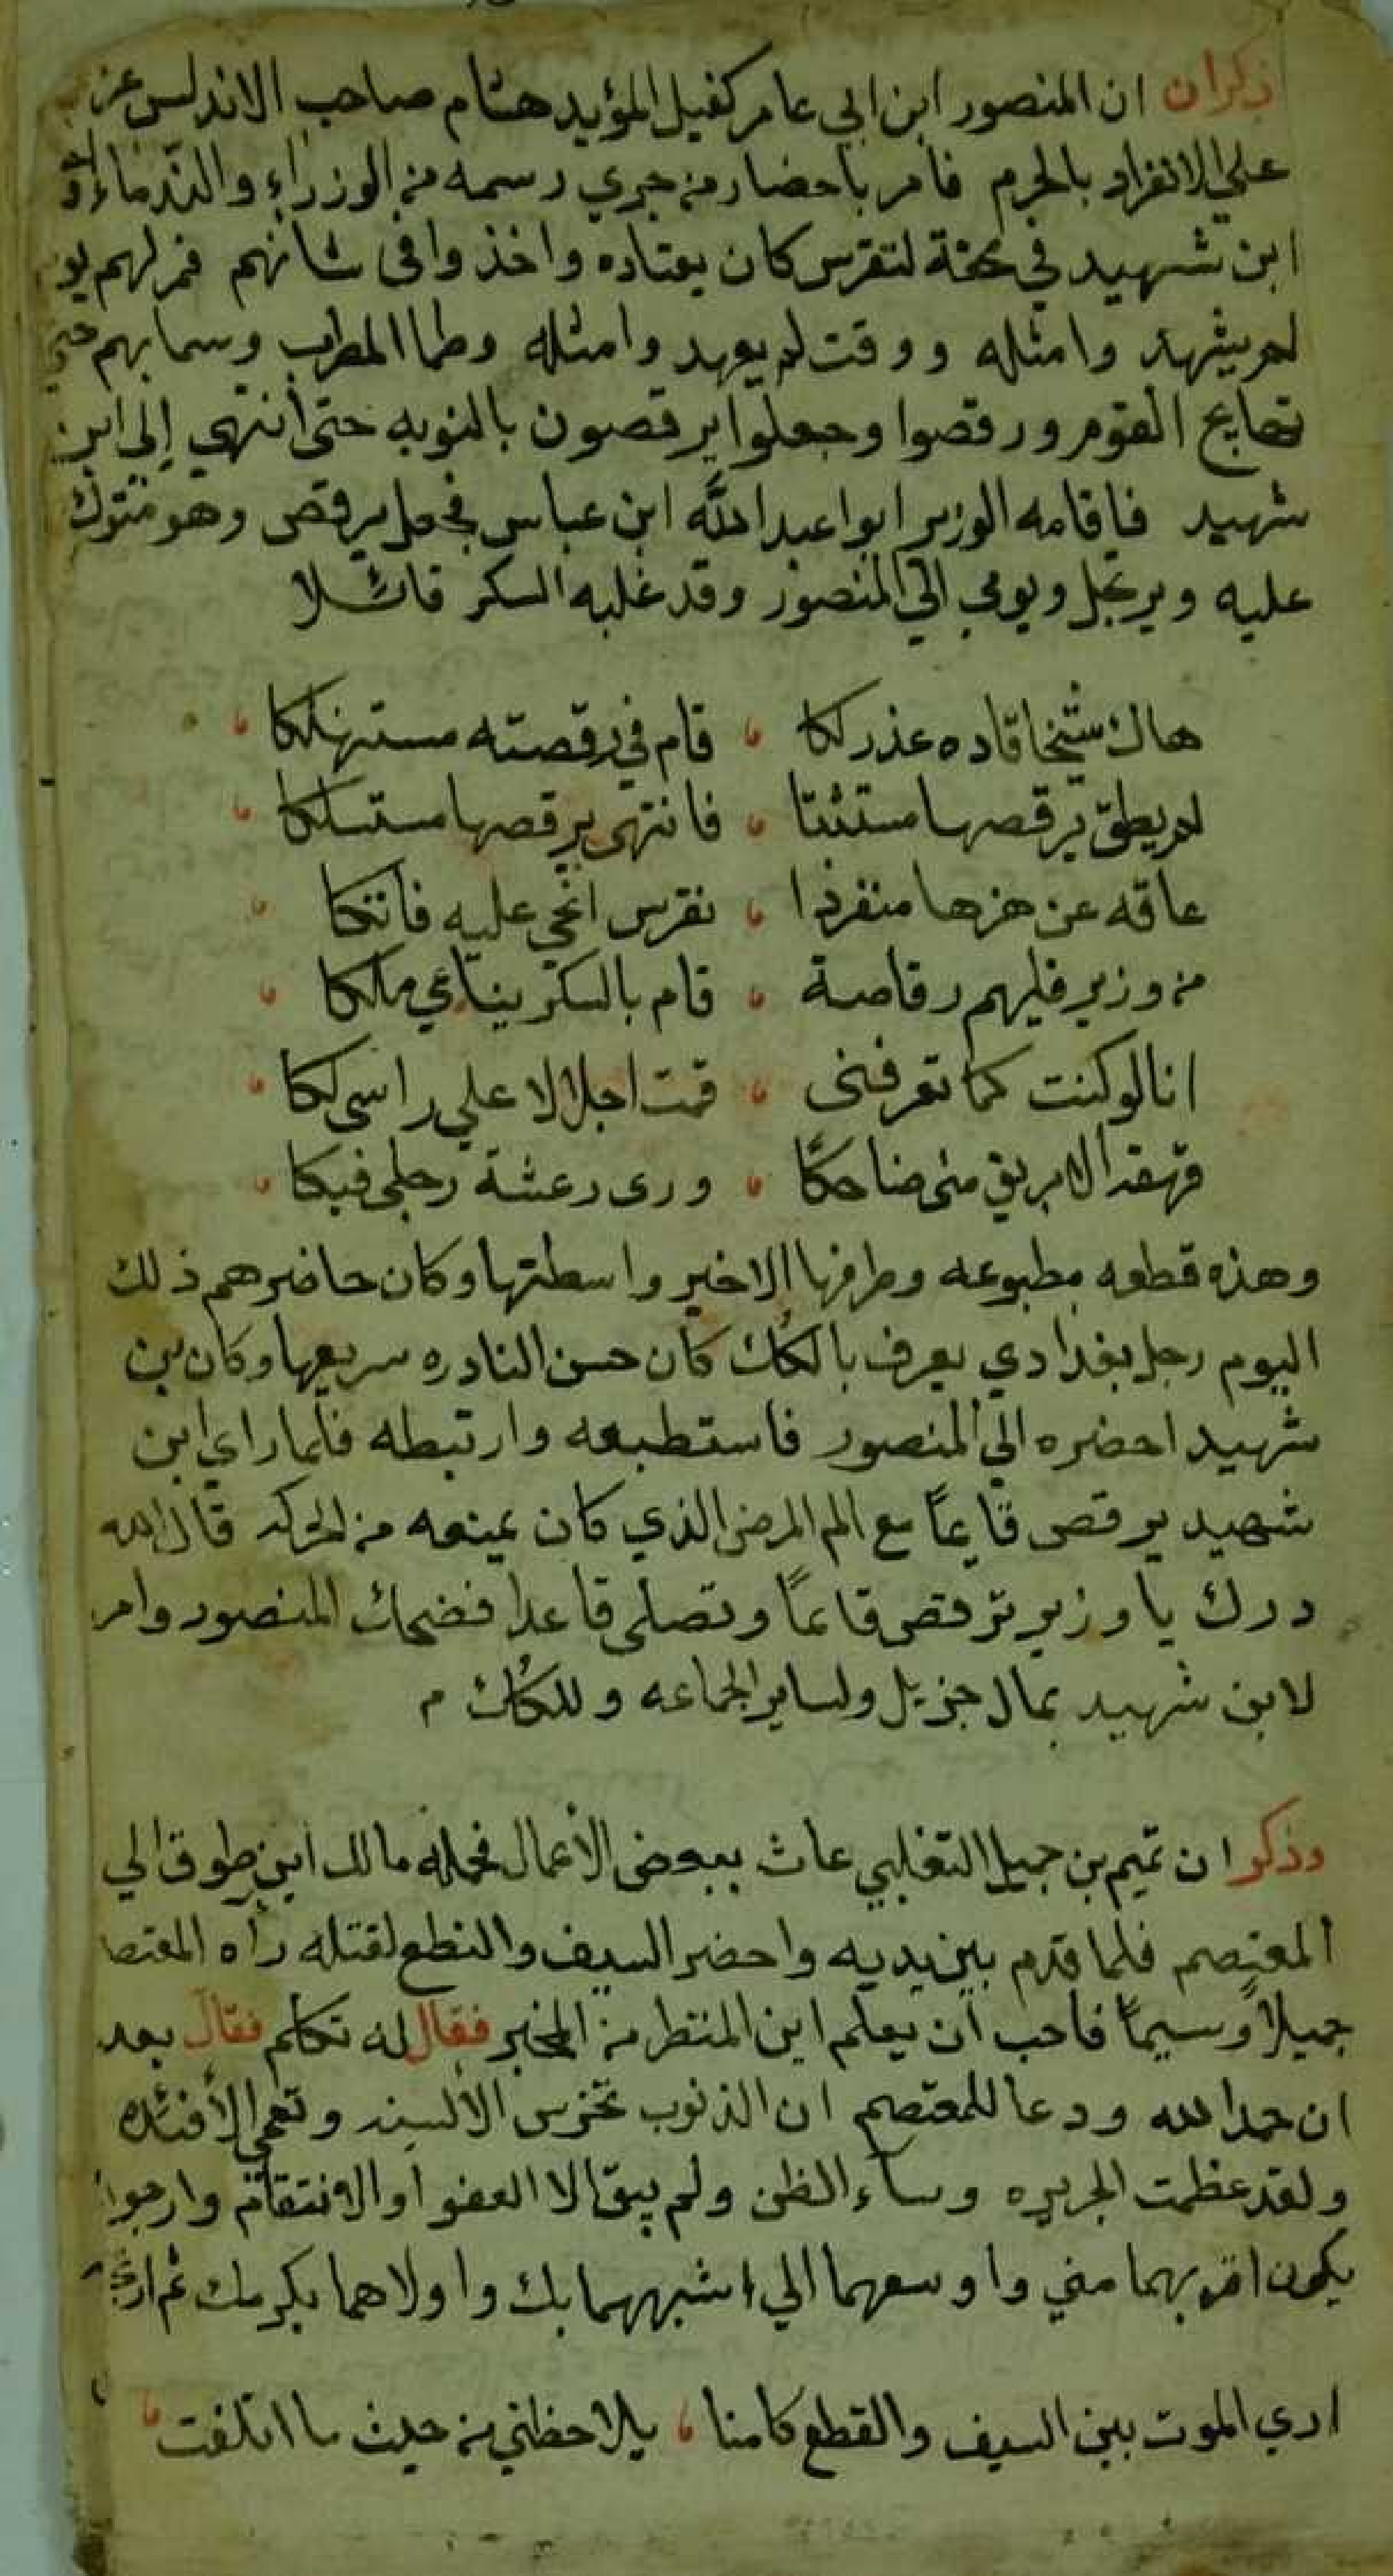 ذكران ان المنصور ابن ابي عامر كفيل المؤيد هشام صاحب الاندلس عزم
على الانفراد بالحرم فامر باحضار من جري رسمه من الوزراء والندماء
ابن شهيد في محفة لنقرس كان يعتاده واخذوا في شانهم فمر لهم يوم
لم يشهدوا مثله ووقت لم يعهدوا مثله وطما الطرب وسما بهم حتي
تهايج القوم ورقصوا وجعلوا يرقصون بالنوبه حتى انتهي إلى ابن
شهيد فاقامه الوزير ابوا عبد الله ابن عباس فجعل يرقص وهو متوك
عليه ويرتجل ويومي الي المنصور وقد غلبه السكر قائلا
هاك شيخا قاده عذر لكا ، قام في رقصته مستهلكا
لم يطق يرقصها مستثبتا ، فانتهى يرقصها مستمسكا
عاقه عن هزها منفردا ، نقرس انحي عليه فاتكا
من وزير فليهم رقاصة ، قام بالسكر يناغي ملكا
انا لو كنت كما تعرفنى ، قمت اجلالا علي راسى لكا
قهقه الابريق منى ضاحكًا ، ورى رعشة رجلى فبكا
وهذه قطعه مطبوعه وطرفها الاخير واسطتها وكان حاضرهم ذلك
اليوم رجل بغدادي يعرف بالكك كان حسن النادره سريعها وكان بن
شهيد احضره الي المنصور فاستطبعه وارتبطه فلما راي ابن
شهيد يرقص قايمًا مع الم المرض الذي كان يمنعه من الحركه قال لله
درك يا وزير ترقص قائمًا وتصلى قاعدا فضحك المنصور وامر
لابن شهيد بمال جزيل ولساير الجماعه وللكك م
وذكر ان تميم بن جميل التغلبي عاث ببعض الأعمال فحمله مالك ابن طوق الي
المعتصم فلما قدم بين يديه واحضر السيف والنطع لقتله رأه المعتصم
جميلاً وسيمًا فاحب ان يعلم اين المنظر من المخبر فقال له تكلم فقال بعد
ان حمدا لله ودعا للمعتصم ان الذنوب تخرس الألسنه وتعمي الأفئده
ولقد عظمت الجريره وساء الظن ولم يبق الا العفو او الانتقام وارجوا
يكون اقربهما مني واوسعهما الي اشبههما بك واولاهما بكرمك ثم
اري الموت بين السيف والقطع كامنا ، يلاحظني من حيث ما اتلفت